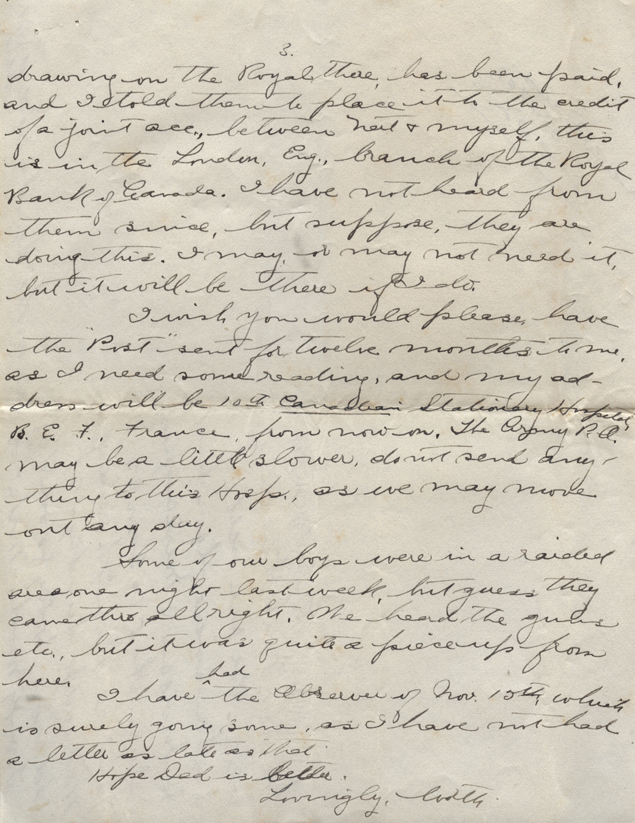 3.
drawing on the Royal there, has been paid,
and I told them to place it to the credit
of a joint acc., between & myself, this
is in the London, Eng., branch of the Royal
Bank of Canada. I have not heard from
them since, but suppose, they are
doing this. I may, or may not need it,
but it will be there if I do.
I wish you would please have
the "Post" sent for twelve months to me,
as I need some reading, and my ad-
dress will be 10th Canadian Stationary Hospital
B. E. F., France, from now on. The Army P.O.
may be a little slower, don't send any-
thing to this Hosp., as we may move
out any day.
Some of our boys were in a raided
area one night last week, but guess they
came thro all right. We heard the guns
etc., but it was quite a piece up from
here.
I have had the Observer of Nov. 15th, which
is surely going some, as I have not had
a letter as late as that.
Hope Dad is better.
Lovingly,